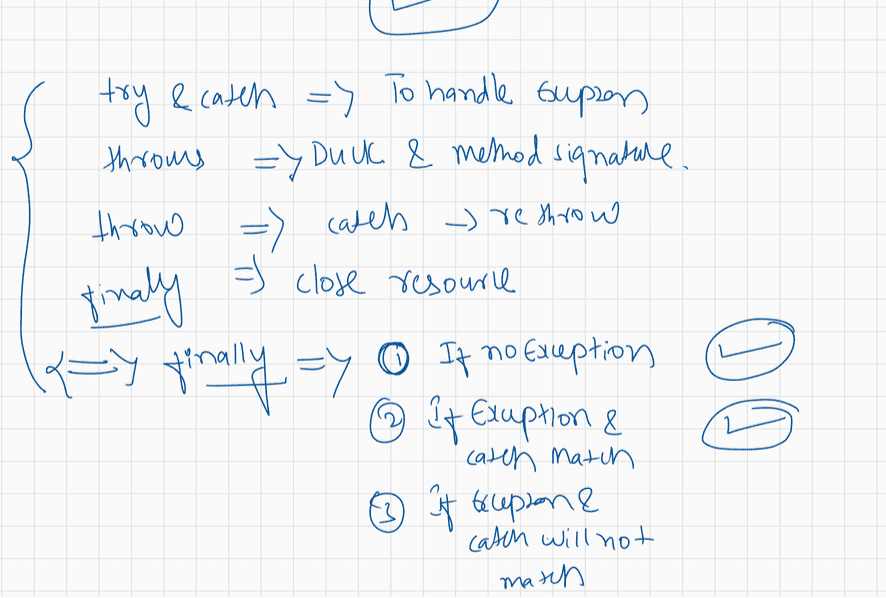 try & catch => To handle Exception
throws => Duck & method signature.
throw => catch -> rethrow
finally => close resource
<=> finally => ① If no Exception
② if Exception &
catch match
③ if exception &
catch will not
match